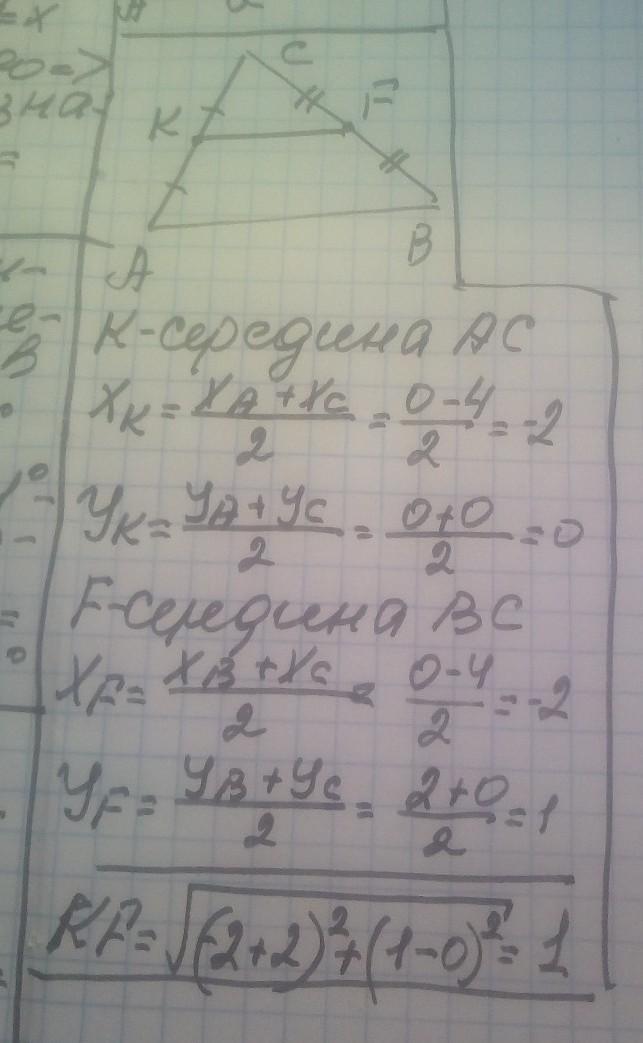 C
F
K
A
B
K-середина AC
X_K = (X_A + X_C)/2 = (0-4)/2 = -2
У_K = (У_A + У_C)/2 = (0+0)/2 = 0
F-середина BC
X_F = (X_B + X_C)/2 = (0-4)/2 = -2
У_F = (У_B + У_C)/2 = (2+0)/2 = 1
KF = √((-2+2)² + (1-0)²) = 1